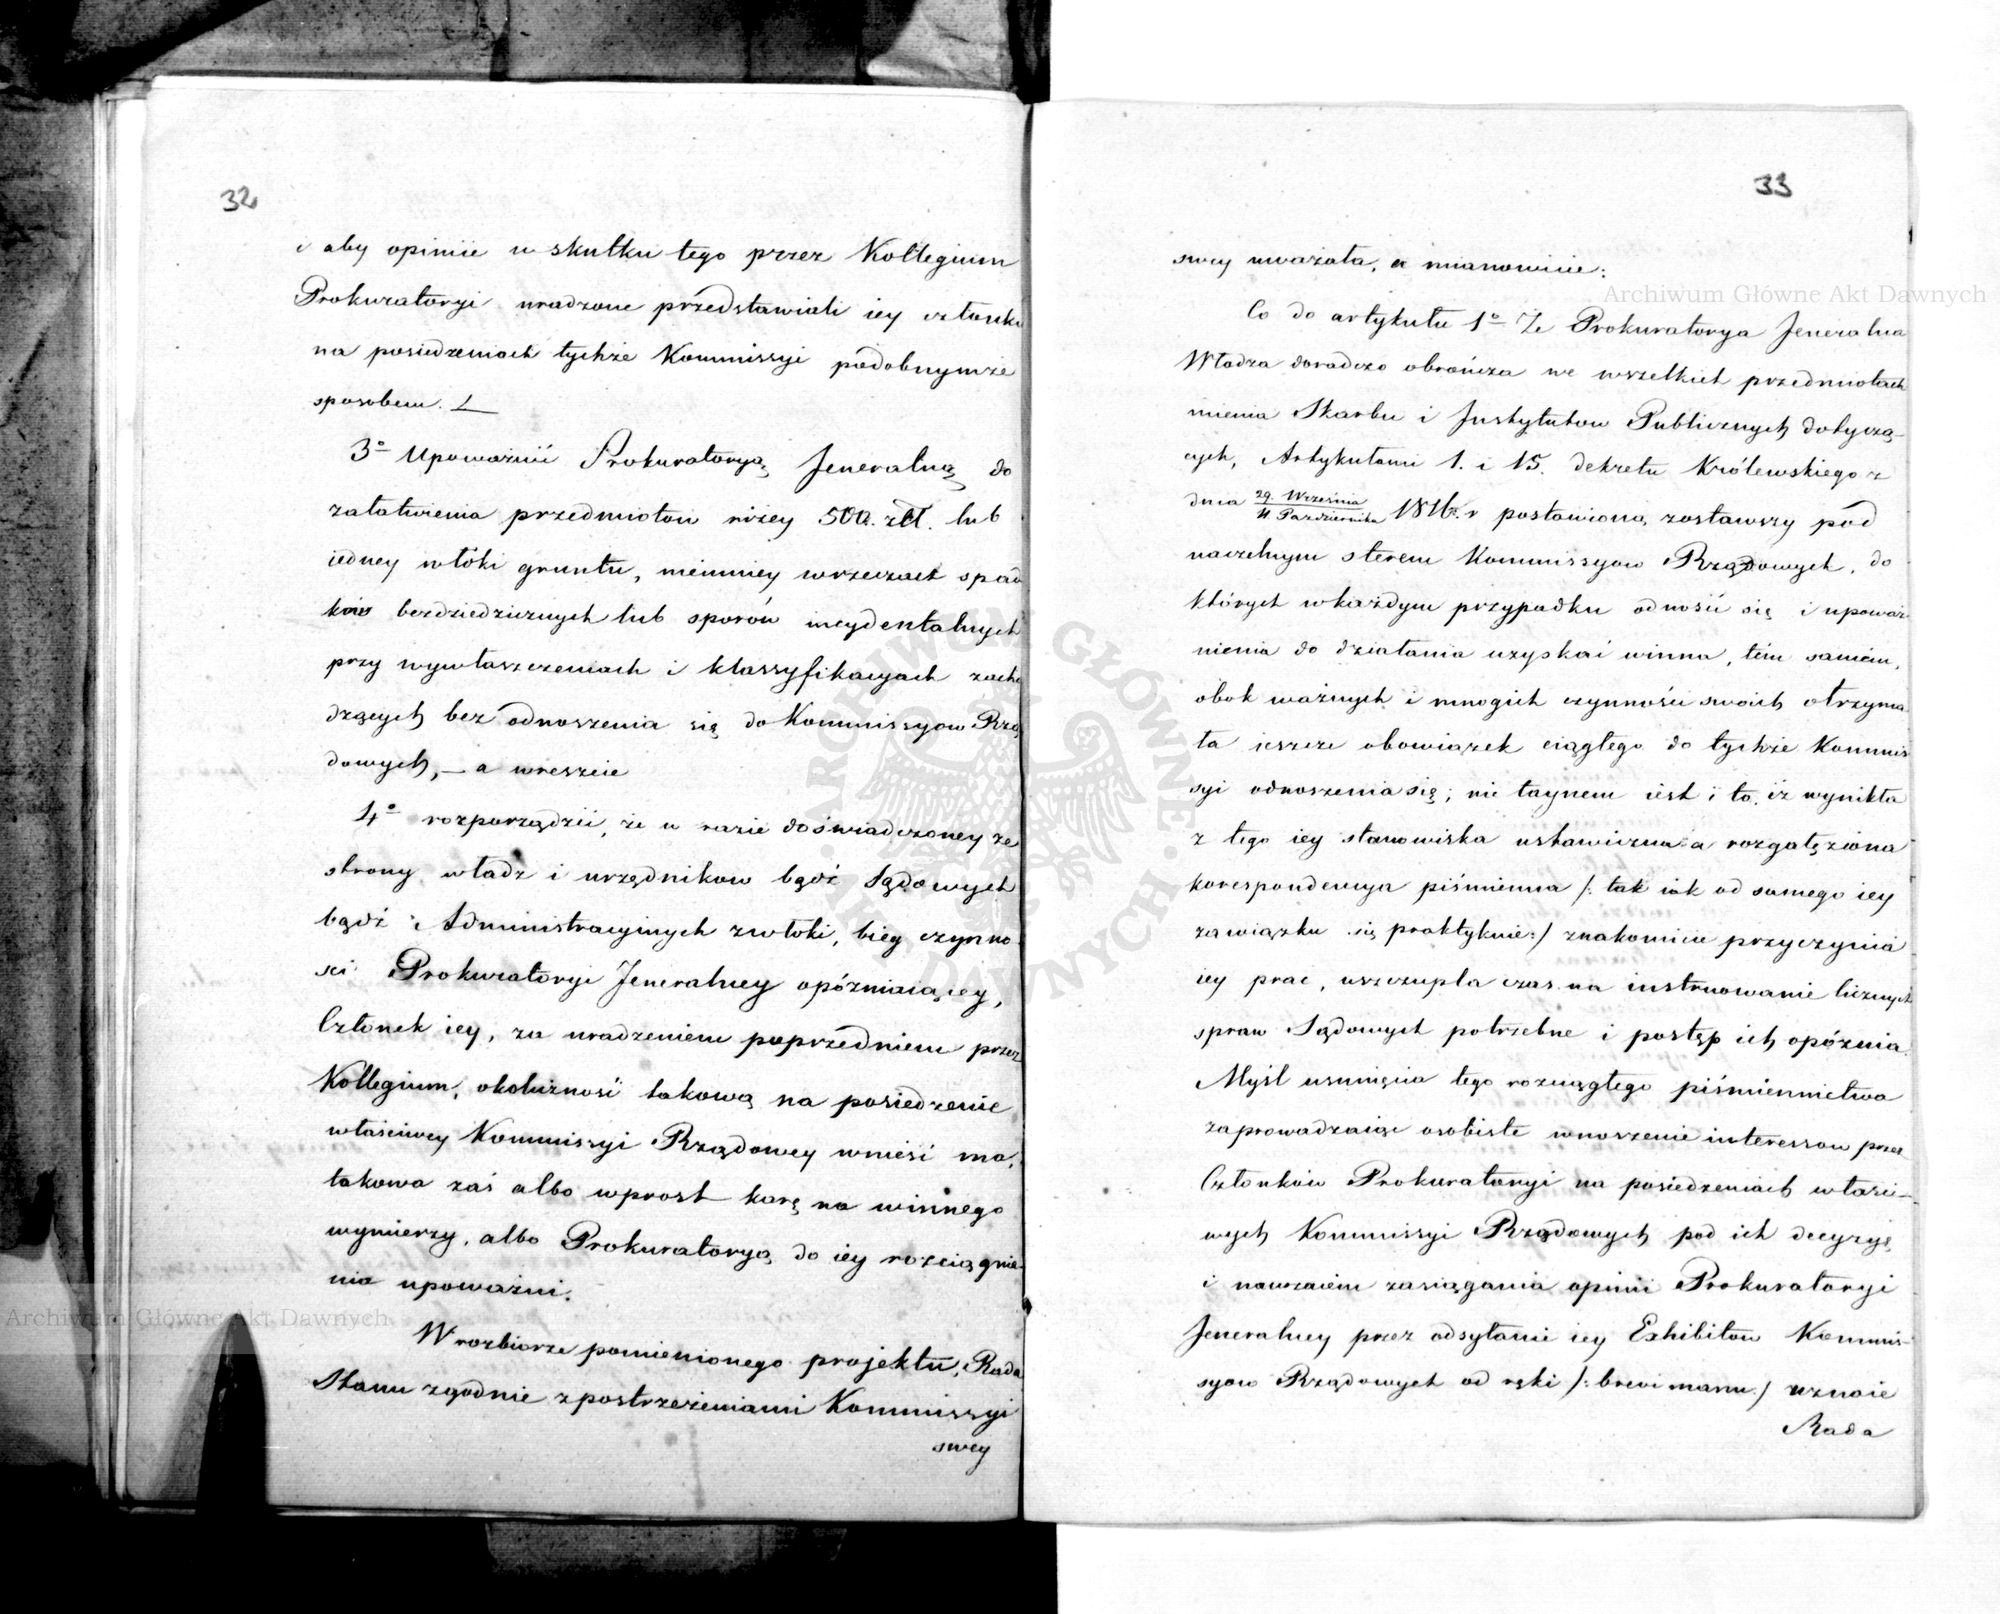 32
i aby opinie w skutku tego przez Kollegium
Prokuratoryi uradzone przedstawiali iey członki
na posiedzeniach tychże Kommissyi podobnymże
sposobem.
3o Upoważnić Prokuratoryą Jeneralną do
załatwienia przedmiotow niżey 500. złł. lub
iedney włóki gruntu, niemniey w rzeczach spad
ków bezdziedzicznych lub sporów incydentalnych
przy wywłaszczeniach i klassyfikacyach zacho
dzących bez odnoszenia się do Kommissyow Rzą
dowych, — a wreszcie
4o rozporządzić, że w razie doświadczoney ze
strony władz i urzędnikow bądź Sądowych
bądź Administracyinych zwłoki, bieg czynno-
sci Prokuratoryi Jeneralney opóźniaiącey,
Członek iey, za uradzeniem poprzedniem przez
Kollegium, okoliczność takową na posiedzenie
właściwey Kommissyi Rządowey wnieść ma,
takowa zaś albo wprost karę na winnego
wymierzy, albo Prokuratoryą do iey rozciągnie-
nia upoważni.
W rozbiorze pomienionego projektu, Rada
Stanu zgodnie z postrzeżeniami Kommissyi
swey
33
swey uważała, a mianowicie:
Co do artykułu 1o Że Prokuratorya Jeneralna
Władza doradczo obrończa we wszelkich przedmiotach
mienia Skarbu i Instytutow Publicznych dotyczą-
cych, Artykułami 1. i 15. dekretu Królewskiego z
dnia 29 Września / 11 Października 1816. r postawioną zostawszy pod
naczelnym sterem Kommissyow Rządowych, do
których w każdym przypadku odnosić się i upoważ-
nienia do działania uzyskać winna, tém samém,
obok ważnych i mnogich czynności swoich otrzyma
ła ieszcze obowiązek ciągłego do tychże Kommis-
syi odnoszenia się; nie taynem iest i to, iż wynikła
z tego iey stanowiska ustawiczna a rozgałęziona
korespondencya piśmienna /: tak iak od samego iey
zawiązku się praktykuie:/ znakomicie przyczynia
iey prac, uszczupla czas na instruowanie licznych
spraw Sądowych potrzebne i postęp ich opóźnia.
Myśl usunięcia tego rozciągłego piśmiennictwa
zaprowadzaiąc osobiste wnoszenie interessow przez
Członków Prokuratoryi na posiedzeniach właści-
wych Kommissyi Rządowych pod ich decyzyę
i nawzaiem zasiągania opinii Prokuratoryi
Jeneralney przez odsyłanie iey Exhibitow Kommis-
syow Rządowych od ręki /: brevi manu :/ uznaie
Rada
Archiwum Główne Akt Dawnych
Archiwum Główne Akt Dawnych